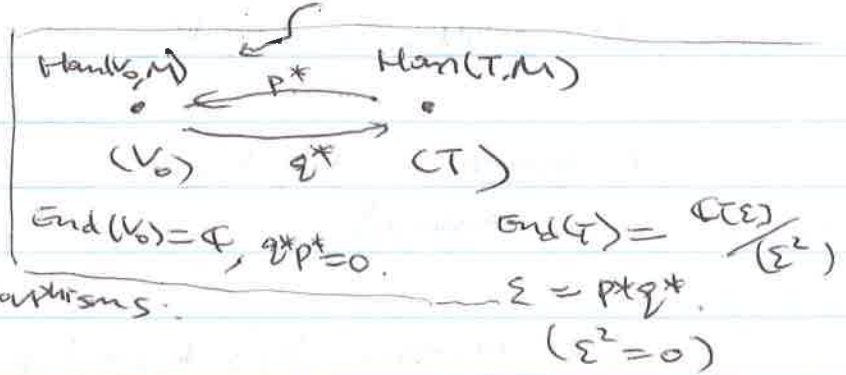 Hom(V₀,M) p* Hom(T,M)
(V₀) q* (T)
End(V₀)=ℂ, q*p*=0. End(T)=ℂ[ε]/(ε²)
ε = p*q*.
(ε²=0)